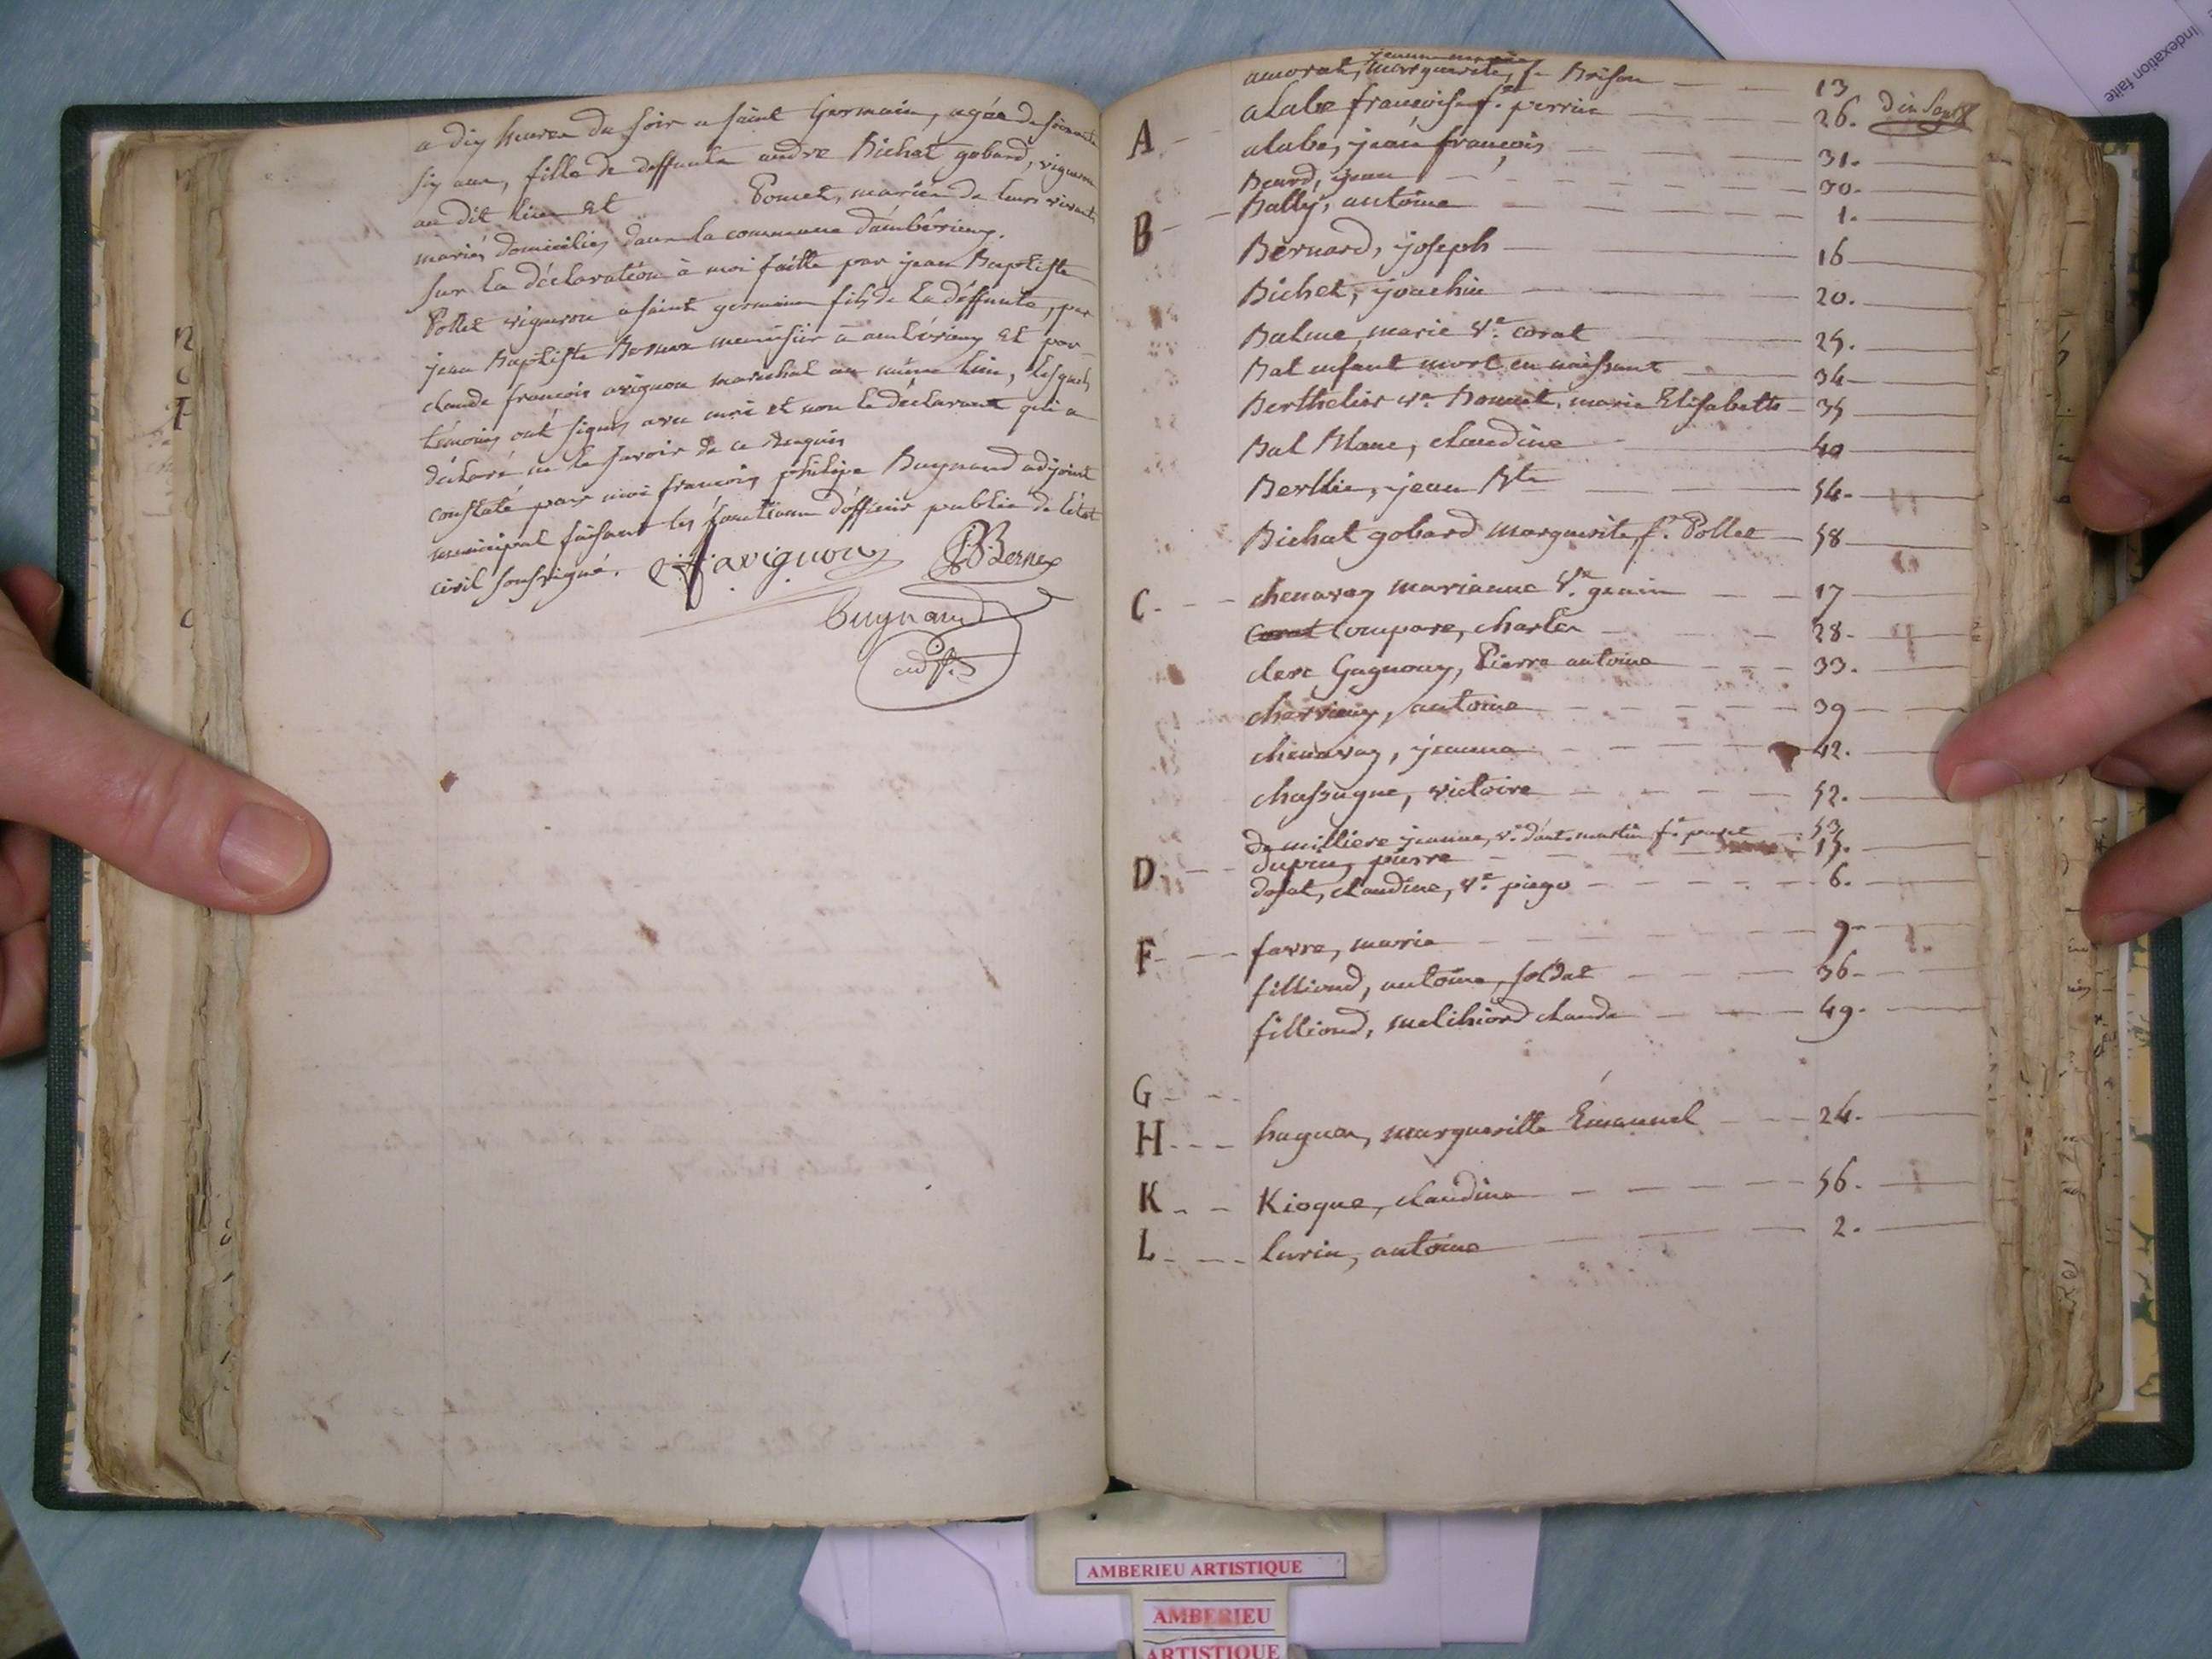 a dix heures du soir a saint Germain, agée de soixante
six ans, fille de deffunts andre Bichat gobard, vigneron
au dit lieu et Pomet, mariés de leurs vivants
mariés domiciliés dans la commune d'ambérieux.
sur la déclaration à moi faitte par jean Baptiste
Pollet vigneron a saint germain fils de la deffunte, par
jean Baptiste Bernex menuisier a ambérieux et par
claude francois avignon maréchal au même lieu, lesquels
témoins ont signés avec moi et non le déclarant qui a
déclaré ne le savoir de ce requis
constaté par moi francois philipe Bugnand adjoint
municipal faisant les fonctions d'officier public de l'état
civil soussigné.
Cfavignon JBBernex
Bugnand
adjt.
jeanne marie
amorat, marguerite, f. Brison 13
A alabe francoise fe. perrin 26.
alabe, jean francois 31.
Beard, jean 30.
B Bally, antoine 1.
Bernard, joseph 16
Bichet, joachin 20.
Balme marie Ve. corat 25.
Bal enfant mort en naissant 34
Berthelier Ve. Bonnet, marie Elisabeth 35
Bal Blanc, claudine 40
Berthie, jean Bte 54.
Bichat gobard marguerite fe. Pollet 58
C chenavay marianne Ve. genin 17
Corat Compare, charles 28.
clerc Gagnoux, Pierre antoine 33.
chervieux, antoine 39
chenavay, jeanne 42.
chassagne, victoire 52.
de milliere jeanne, ve. d'ant. martin 53
D dupuy pierre 15.
dosat, claudine, Ve. piego 6.
F favre, marie 9.
filliond, antoine, soldat 36.
filliond, melchiord claude 49.
G
H hugues, margueritte Emanuel 24.
K Kioque, claudine 56.
L lurin, antoine 2.
indexation faite
AMBERIEU ARTISTIQUE
AMBERIEU
ARTISTIQUE